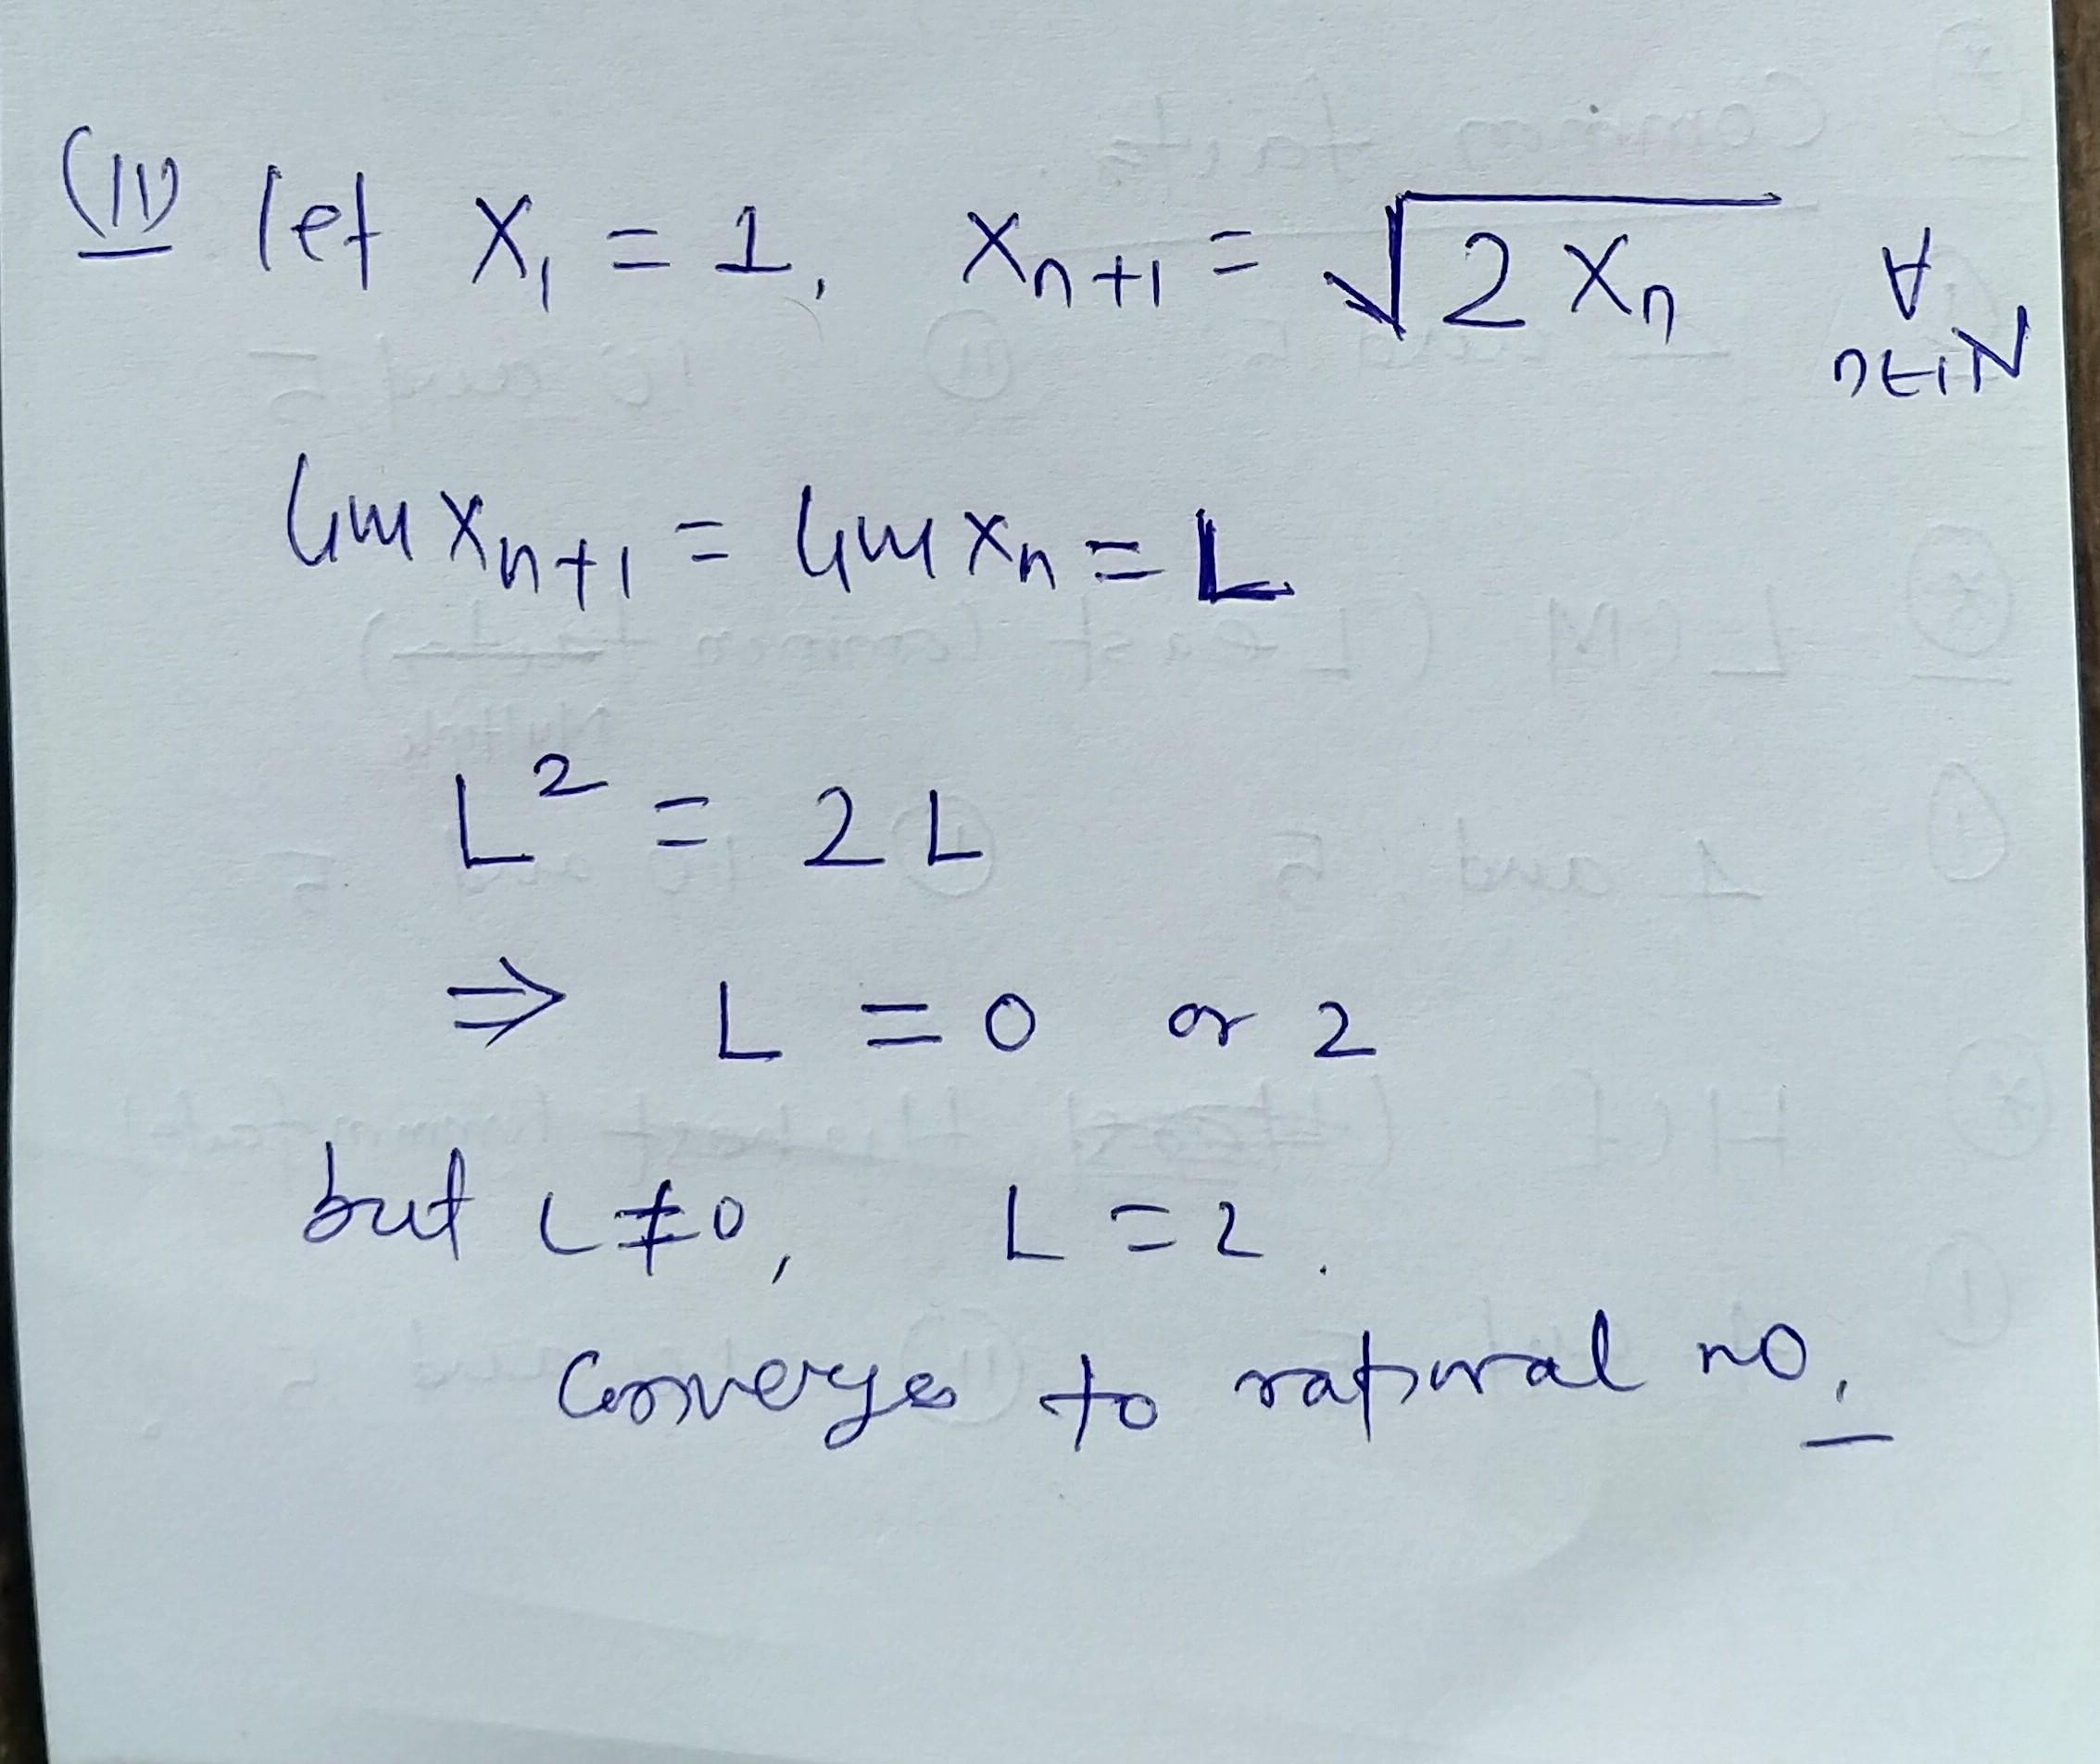 (ii) let X₁ = 1, Xn+1 = √2Xn ∀ n∈IN
lim Xn+1 = lim Xn = L
L² = 2L
⇒ L = 0 or 2
but L ≠ 0, L = 2.
Converges to rational no.